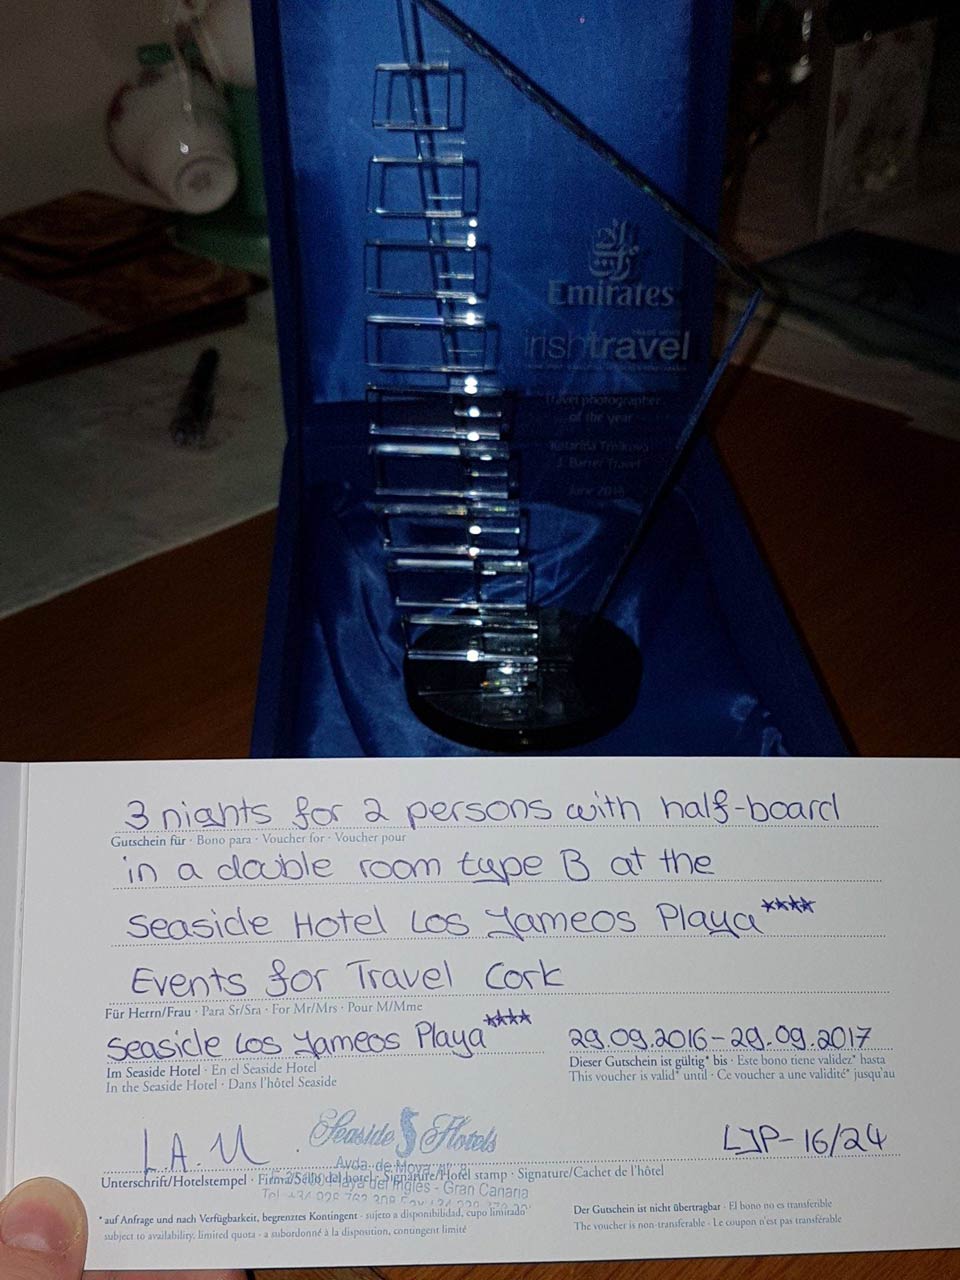 Emirates
TRADE NEWS
irishtravel
Travel photographer
of the year
J. Barter Travel
June 2016
3 nights for 2 persons with half-board
Gutschein für · Bono para · Voucher for · Voucher pour
in a double room type B at the
Seaside Hotel Los Jameos Playa****
Events for Travel Cork
Für Herrn/Frau · Para Sr/Sra · For Mr/Mrs · Pour M/Mme
Seaside Los Jameos Playa**** 29.09.2016-29.09.2017
Im Seaside Hotel · En el Seaside Hotel Dieser Gutschein ist gültig* bis · Este bono tiene validez* hasta
In the Seaside Hotel · Dans l'hôtel Seaside This voucher is valid* until · Ce voucher a une validité* jusqu'au
Seaside Hotels
LJP-16/24
Avda. de Moya
Unterschrift/Hotelstempel · Firma/Sello del hotel · Signature/Hotel stamp · Signature/Cachet de l'hôtel
Playa del Inglés - Gran Canaria
* auf Anfrage und nach Verfügbarkeit, begrenztes Kontingent · sujeto a disponibilidad, cupo limitado Der Gutschein ist nicht übertragbar · El bono no es transferible
subject to availability, limited quota · a subordonné à la disposition, contingent limité The voucher is non-transferable · Le coupon n'est pas transférable